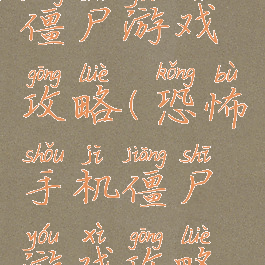 僵尸游戏
gōng lüè kǒng bù
攻略(恐怖
shǒu jī jiāng shī
手机僵尸
yóu xì gōng lüè
游戏攻略